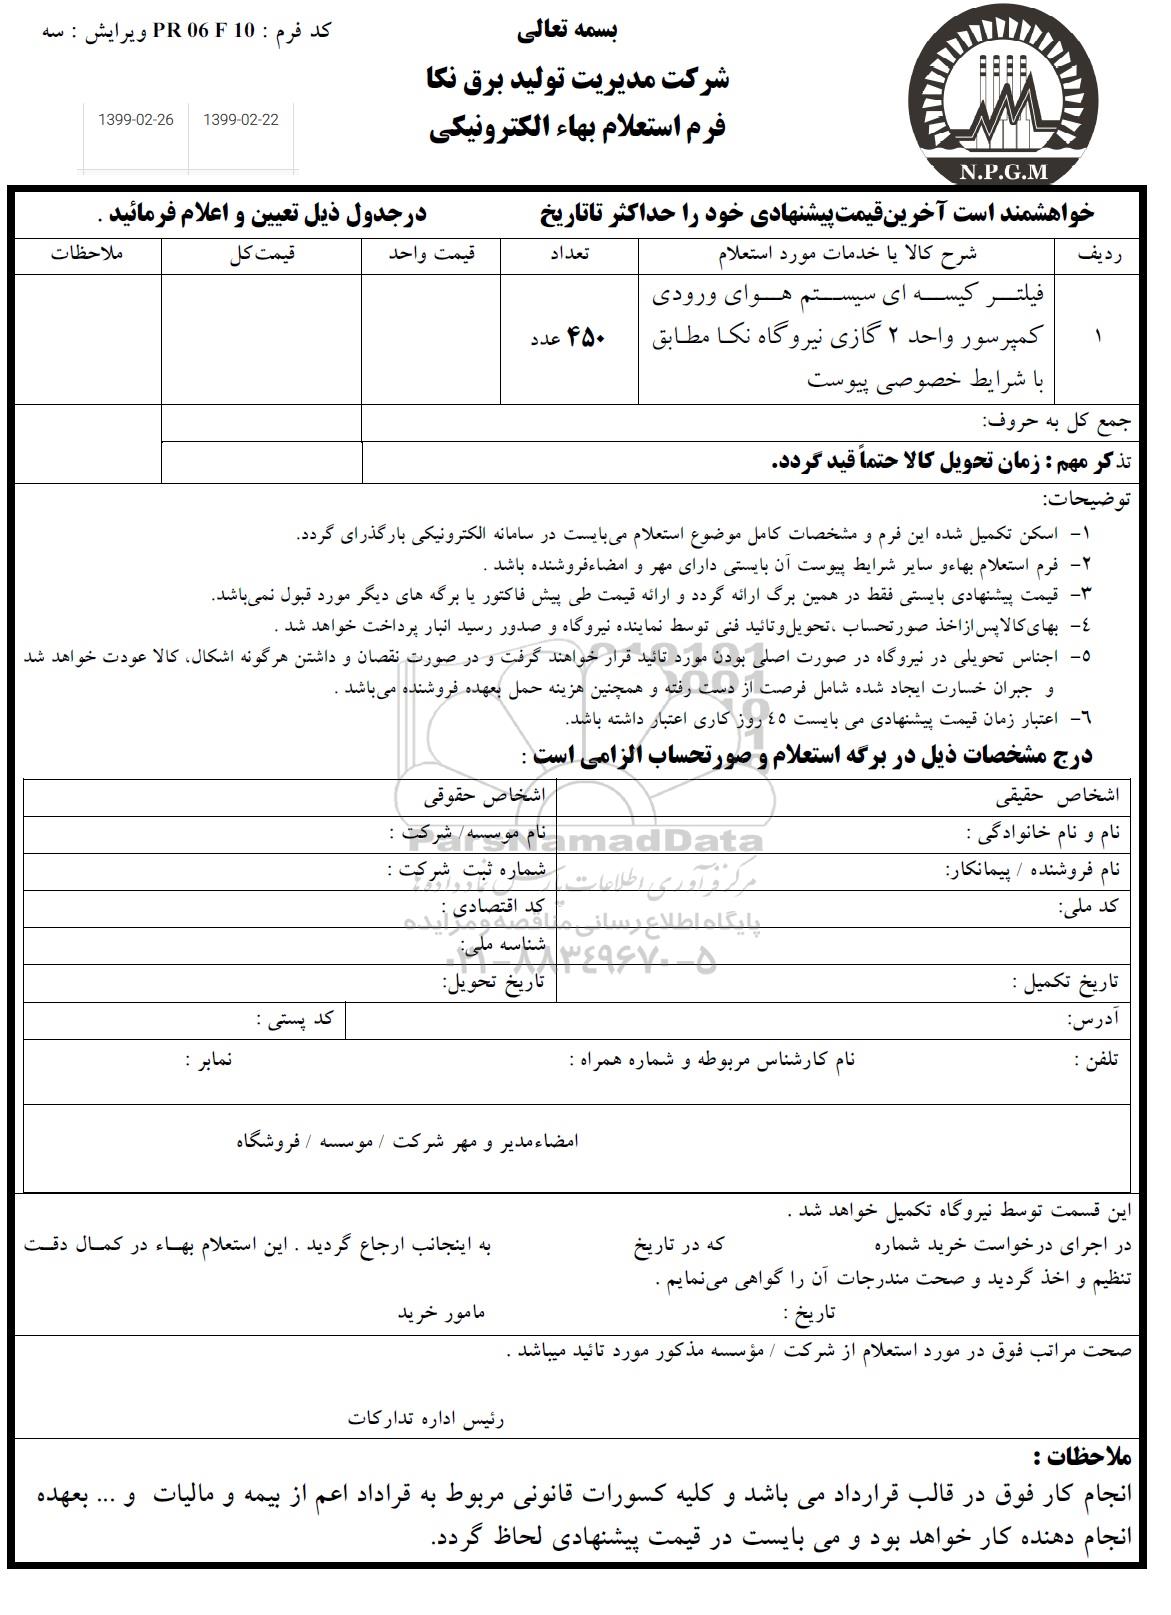 بسمه تعالی
کد فرم : PR 06 F 10 ویرایش : سه
شرکت مدیریت تولید برق نکا
فرم استعلام بهاء الکترونیکی
1399-02-26 1399-02-22
N.P.G.M
خواهشمند است آخرین‌قیمت‌پیشنهادی خود را حداکثر تاتاریخ درجدول ذیل تعیین و اعلام فرمائید .
ردیف شرح کالا یا خدمات مورد استعلام تعداد قیمت واحد قیمت‌کل ملاحظات
۱ فیلتر کیسه ای سیستم هوای ورودی
کمپرسور واحد ۲ گازی نیروگاه نکا مطابق ۴۵۰ عدد
با شرایط خصوصی پیوست
جمع کل به حروف:
تذکر مهم : زمان تحویل کالا حتماً قید گردد.
توضیحات:
۱- اسکن تکمیل شده این فرم و مشخصات کامل موضوع استعلام می‌بایست در سامانه الکترونیکی بارگذرای گردد.
۲- فرم استعلام بهاءو سایر شرایط پیوست آن بایستی دارای مهر و امضاءفروشنده باشد .
۳- قیمت پیشنهادی بایستی فقط در همین برگ ارائه گردد و ارائه قیمت طی پیش فاکتور یا برگه های دیگر مورد قبول نمی‌باشد.
٤- بهای‌کالاپس‌ازاخذ صورتحساب ،تحویل‌وتائید فنی توسط نماینده نیروگاه و صدور رسید انبار پرداخت خواهد شد .
٥- اجناس تحویلی در نیروگاه در صورت اصلی بودن مورد تائید قرار خواهند گرفت و در صورت نقصان و داشتن هرگونه اشکال، کالا عودت خواهد شد
و جبران خسارت ایجاد شده شامل فرصت از دست رفته و همچنین هزینه حمل بعهده فروشنده می‌باشد .
٦- اعتبار زمان قیمت پیشنهادی می بایست ٤٥ روز کاری اعتبار داشته باشد.
درج مشخصات ذیل در برگه استعلام و صورتحساب الزامی است :
اشخاص حقیقی اشخاص حقوقی
نام و نام خانوادگی : نام موسسه/ شرکت :
ParsNamadData
نام فروشنده / پیمانکار: شماره ثبت شرکت :
مرکز فرآوری اطلاعات پارس نماد داده ها
کد ملی: کد اقتصادی :
پایگاه اطلاع رسانی مناقصه و مزایده
شناسه ملی:
۰۲۱-۸۸۳٤۹۶۷۰-۵
تاریخ تکمیل : تاریخ تحویل:
آدرس: کد پستی :
تلفن : نام کارشناس مربوطه و شماره همراه : نمابر :
امضاءمدیر و مهر شرکت / موسسه / فروشگاه
این قسمت توسط نیروگاه تکمیل خواهد شد .
در اجرای درخواست خرید شماره که در تاریخ به اینجانب ارجاع گردید . این استعلام بهاء در کمال دقت
تنظیم و اخذ گردید و صحت مندرجات آن را گواهی می‌نمایم .
تاریخ : مامور خرید
صحت مراتب فوق در مورد استعلام از شرکت / مؤسسه مذکور مورد تائید میباشد .
رئیس اداره تدارکات
ملاحظات :
انجام کار فوق در قالب قرارداد می باشد و کلیه کسورات قانونی مربوط به قراداد اعم از بیمه و مالیات و ... بعهده
انجام دهنده کار خواهد بود و می بایست در قیمت پیشنهادی لحاظ گردد.